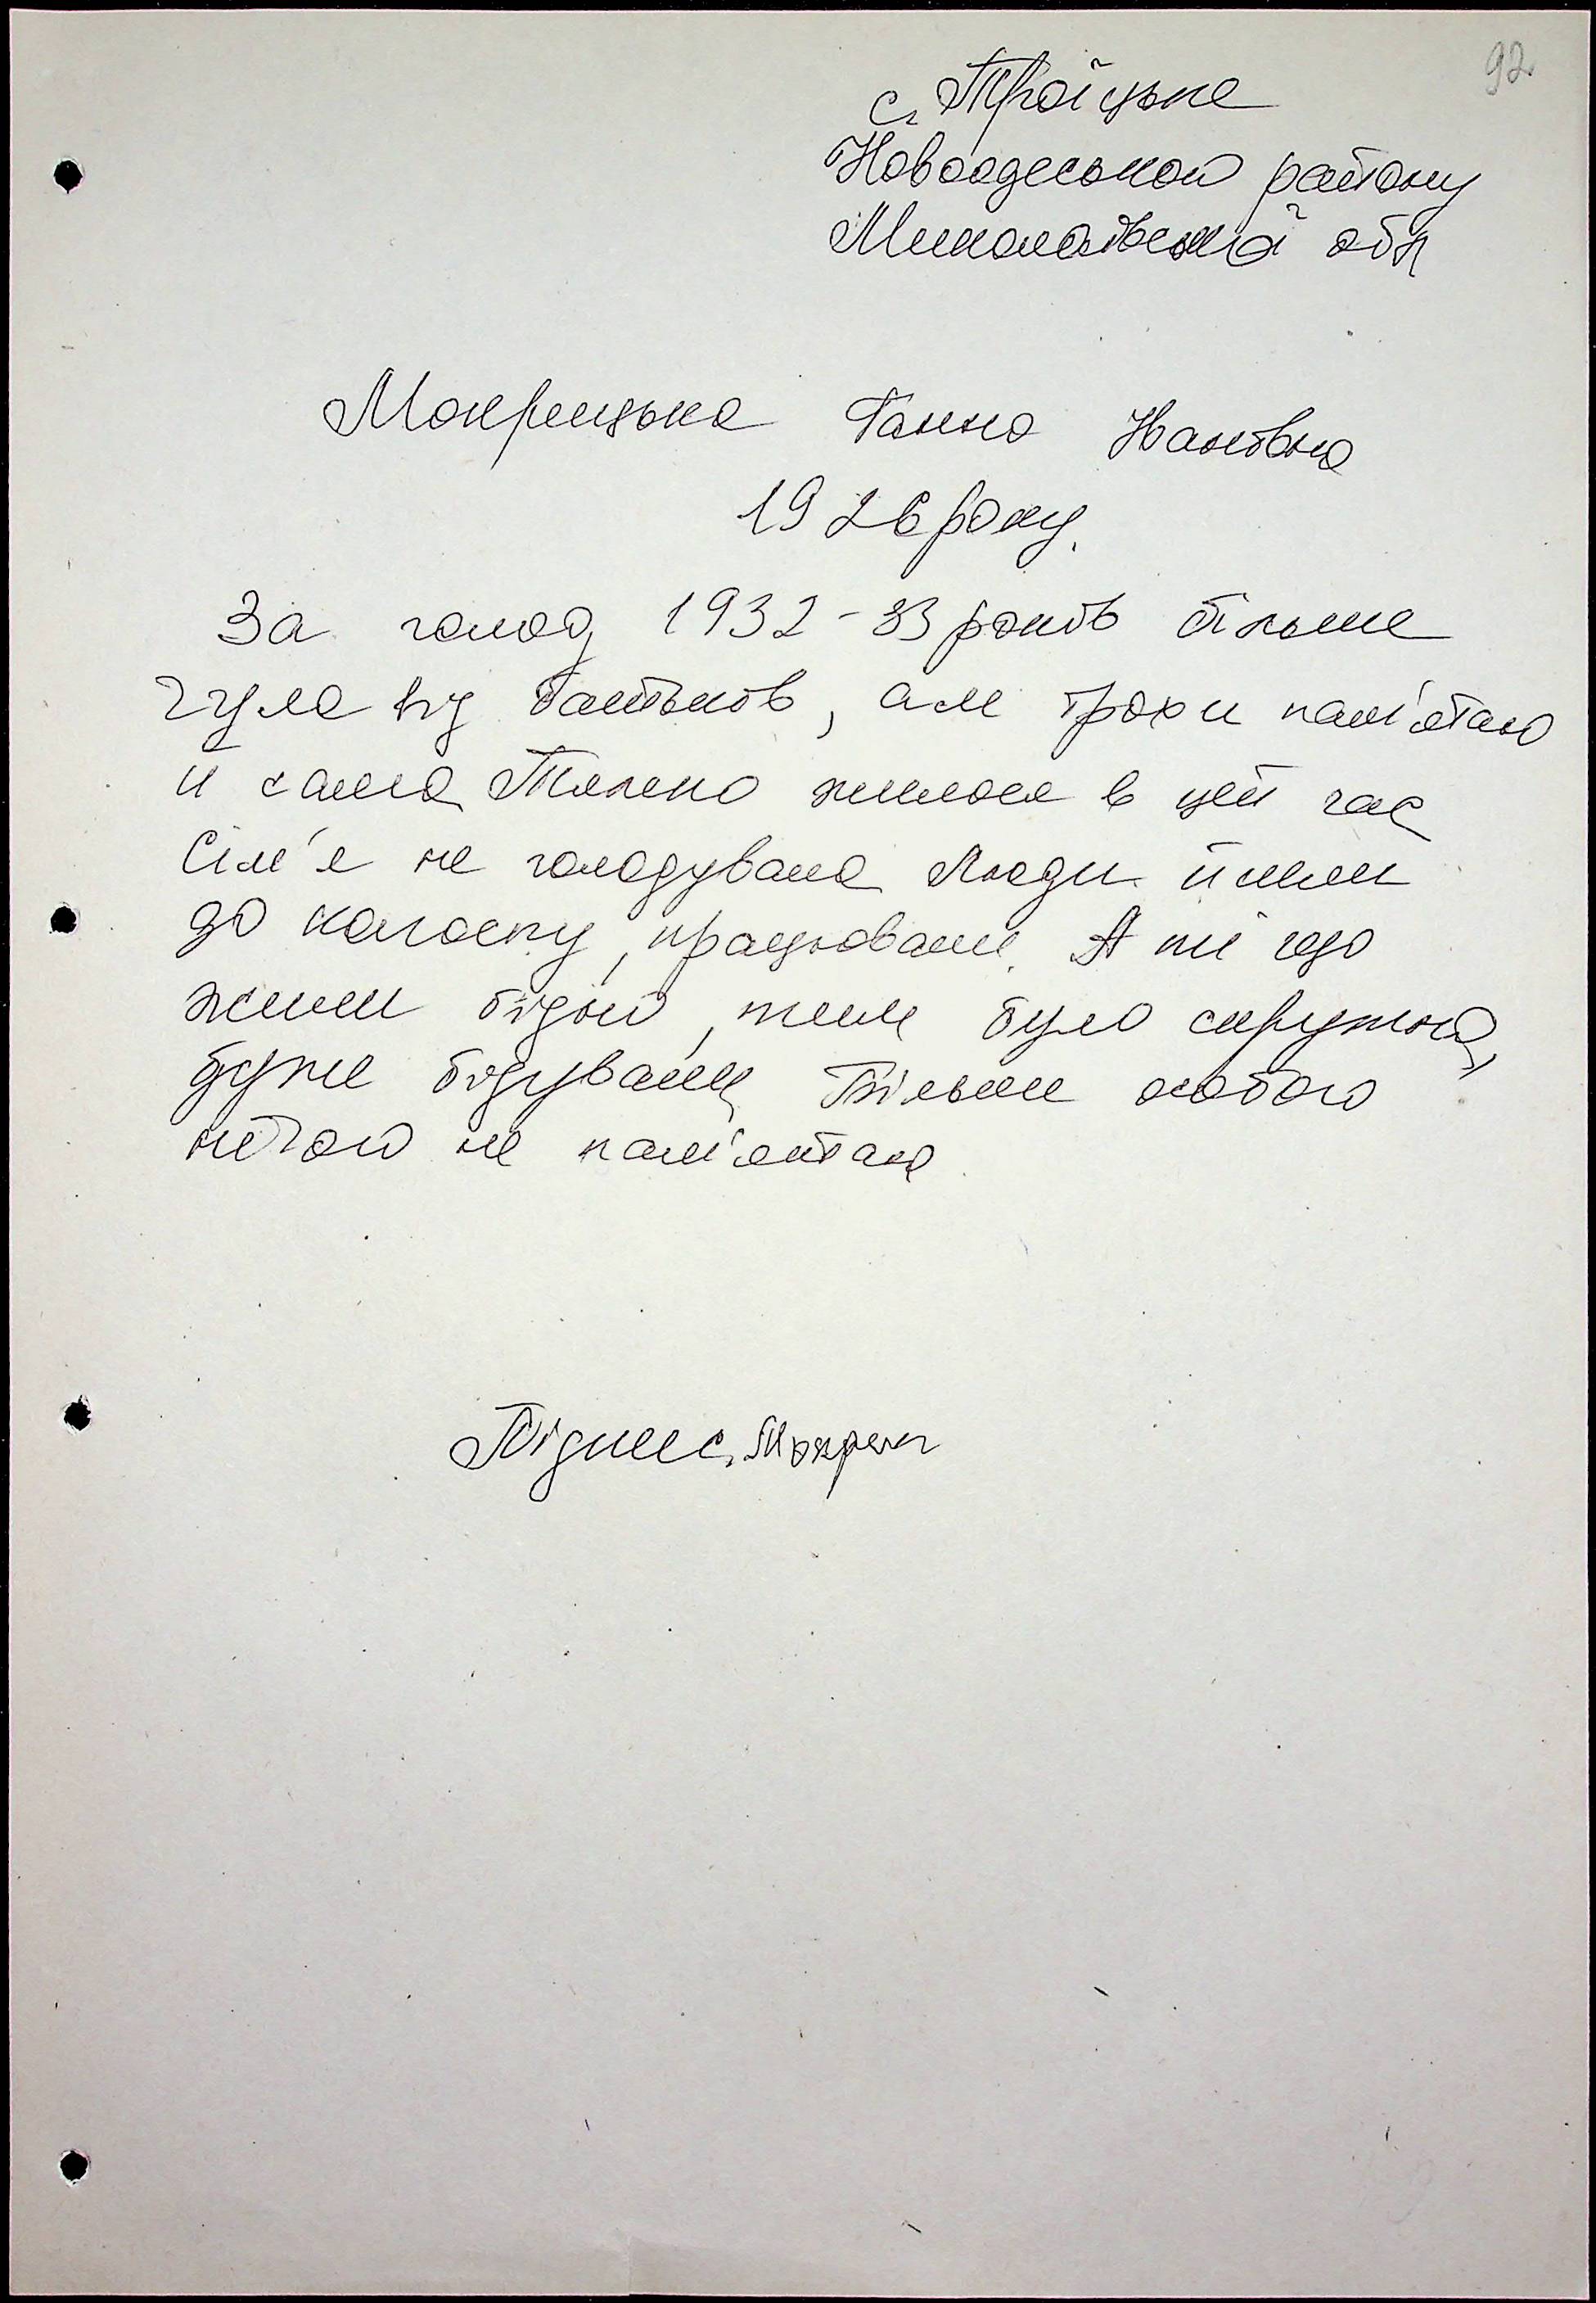 92
с. Троїцьке
Новоодеського району
Миколаївської обл
Мокрицька Ганна Іванівна
1926 року.
За голод 1932-33 років більше
чула від батьків, але трохи пам'ятаю
й сама. Тяжко жилося в цей час
Сім'я не голодувала. Люди йшли
до колгоспу, працювали. А ті що
жили бідно, тим було скрутно,
дуже бідували. Більше особого
нічого не пам'ятаю.
Підпис.